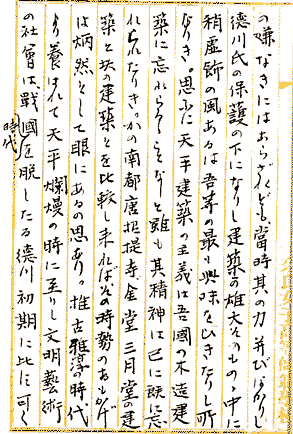 の嫌なきにはあらざれども、當時其の力、並びなかりし
德川氏の保護の下になりし建築の雄大そのもの、中に
稍虛飾の風あるは吾等の最も興味をひきたりし所
なりき。思ふに天平建築の主義は吾國の木造建
築に忘れらるゝことなしと雖も其精神は已に既に忘
れられたりき。かの南都唐招提寺金堂三月堂の建
築と其の建築とを比較し來ればその時勢のおもかげ
は炳然として眼にあるの思あり。推古雅淳の時代
より養はれて天平爛熳の時に至りし文明藝術
の社會は、戰國時代を脫したる德川初期に比す可く